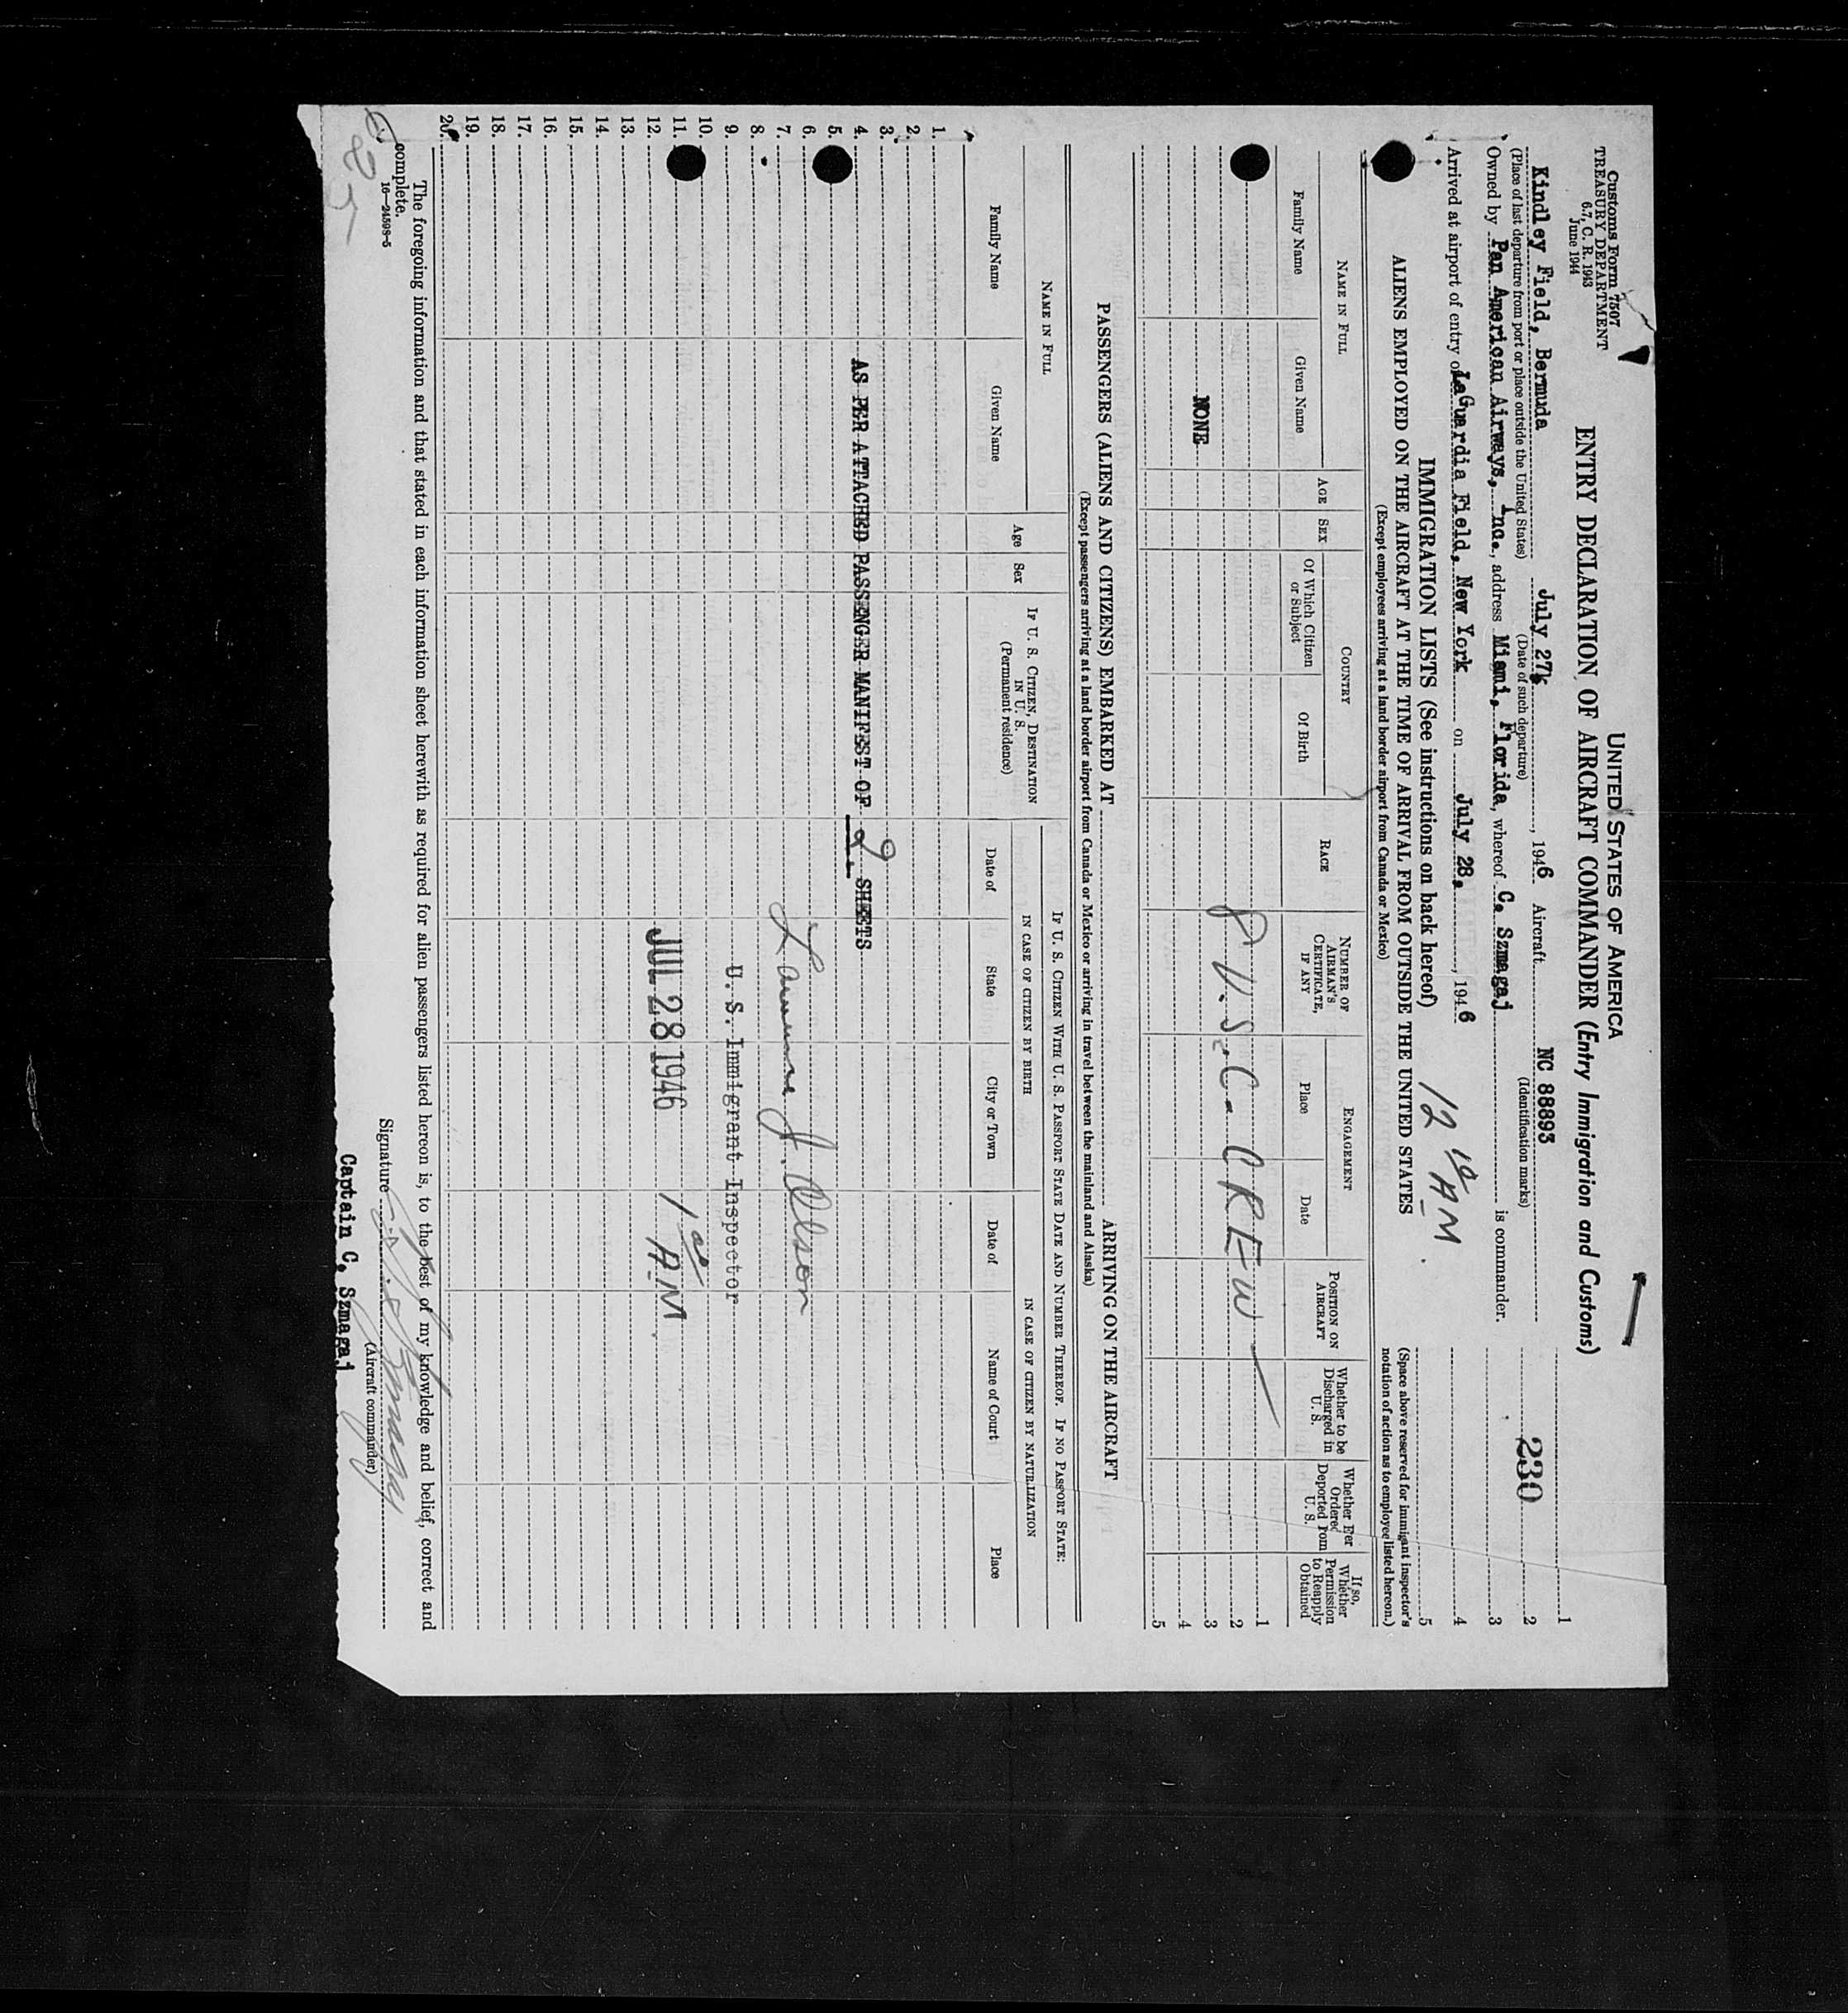 Customs Form 7507
TREASURY DEPARTMENT
6.7, C. R. 1943
June 1944
UNITED STATES OF AMERICA
ENTRY DECLARATION OF AIRCRAFT COMMANDER (Entry Immigration and Customs)
230
Kindley Field, Bermuda July 27, 1946 Aircraft NC 88893
(Place of last departure from port or place outside the United States) (Date of such departure) (Identification marks)
Owned by Pan American Airways, Inc., address Miami, Florida, whereof C. Szmagaj is commander.
Arrived at airport of entry of LaGuardia Field, New York on July 28, 1946 12 10 AM
1
2
3
4
5
IMMIGRATION LISTS (See instructions on back hereof)
(Space above reserved for immigrant inspector's notation of action as to employee listed hereon.)
ALIENS EMPLOYED ON THE AIRCRAFT AT THE TIME OF ARRIVAL FROM OUTSIDE THE UNITED STATES
(Except employees arriving at a land border airport from Canada or Mexico)
NAME IN FULL
Family Name
Given Name
AGE
SEX
COUNTRY
Of Which Citizen or Subject
Of Birth
RACE
NUMBER OF AIRMAN'S CERTIFICATE, IF ANY
ENGAGEMENT
Place
Date
POSITION ON AIRCRAFT
Whether to be Discharged in U. S.
Whether Ever Ordered Deported from U. S.
If so, Whether Permission to Reapply Obtained
1
2
3
4
5
8 U.S.C. CREW
NONE
PASSENGERS (ALIENS AND CITIZENS) EMBARKED AT ARRIVING ON THE AIRCRAFT
(Except passengers arriving at a land border airport from Canada or Mexico or arriving in travel between the mainland and Alaska)
NAME IN FULL
Family Name
Given Name
Age
Sex
IF U. S. CITIZEN, DESTINATION IN U. S.
(Permanent residence)
IF U. S. CITIZEN WITH U. S. PASSPORT STATE DATE AND NUMBER THEREOF. IF NO PASSPORT STATE:
IN CASE OF CITIZEN BY BIRTH
IN CASE OF CITIZEN BY NATURLIZATION
Date of
State
City or Town
Date of
Name of Court
Place
1.
2.
3.
4. AS PER ATTACHED PASSENGER MANIFEST OF 2 SHEETS
5.
6.
7. J. Olson
8.
9. U. S. Immigrant Inspector
10.
11.
12. JUL 28 1946 1 00 AM
13.
14.
15.
16.
17.
18.
19.
20.
The foregoing information and that stated in each information sheet herewith as required for alien passengers listed hereon is, to the best of my knowledge and belief, correct and
complete.
16—24598-5
Signature
(Aircraft commander)
Captain C. Szmagaj